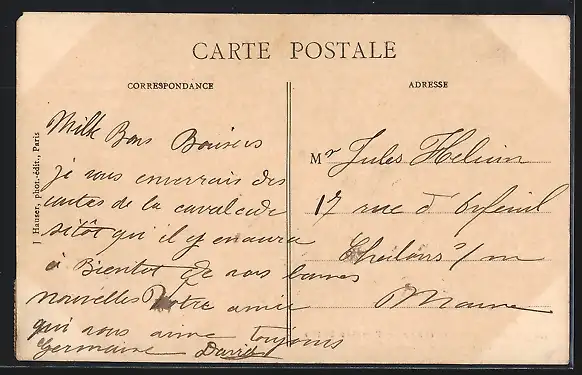 CARTE POSTALE
CORRESPONDANCE
ADRESSE
J Hauser, phot.-édit., Paris
Milk Bons Baisers
je vous enverrais des
cartes de la cavalcade
sitôt qui il y en aura
à Bientot de vos bonnes
nouvelles Votre amie
qui vous aime toujours
Germaine David
Mr Jules Helium
17 rue d'Orfeuil
Chalons s/m
Marne